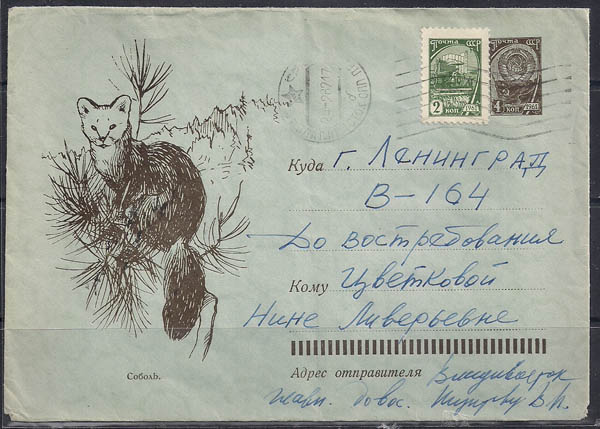 ПОЧТА СССР
ПОЧТА СССР
2 КОП
4 КОП
Куда г. Ленинград
В-164
До востребования
Кому Цветковой
Нине Ливерьевне
Адрес отправителя Владивосток
Соболь.